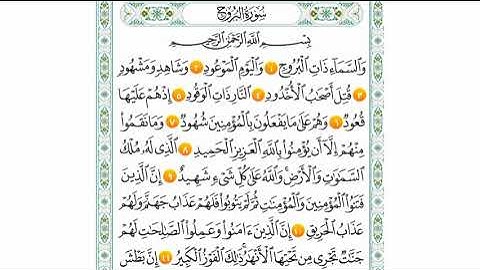 سُورَةُ الْبُرُوجِ
بِسْمِ اللَّهِ الرَّحْمَٰنِ الرَّحِيمِ
وَالسَّمَاءِ ذَاتِ الْبُرُوجِ ١ وَالْيَوْمِ الْمَوْعُودِ ٢ وَشَاهِدٍ وَمَشْهُودٍ
٣ قُتِلَ أَصْحَٰبُ الْأُخْدُودِ ٤ النَّارِ ذَاتِ الْوَقُودِ ٥ إِذْ هُمْ عَلَيْهَا
قُعُودٌ ٦ وَهُمْ عَلَىٰ مَا يَفْعَلُونَ بِالْمُؤْمِنِينَ شُهُودٌ ٧ وَمَا نَقَمُوا
مِنْهُمْ إِلَّا أَن يُؤْمِنُوا بِاللَّهِ الْعَزِيزِ الْحَمِيدِ ٨ الَّذِي لَهُ مُلْكُ
السَّمَٰوَٰتِ وَالْأَرْضِ وَاللَّهُ عَلَىٰ كُلِّ شَيْءٍ شَهِيدٌ ٩ إِنَّ الَّذِينَ
فَتَنُوا الْمُؤْمِنِينَ وَالْمُؤْمِنَٰتِ ثُمَّ لَمْ يَتُوبُوا فَلَهُمْ عَذَابُ جَهَنَّمَ وَلَهُمْ
عَذَابُ الْحَرِيقِ ١٠ إِنَّ الَّذِينَ ءَامَنُوا وَعَمِلُوا الصَّٰلِحَٰتِ لَهُمْ
جَنَّٰتٌ تَجْرِي مِن تَحْتِهَا الْأَنْهَٰرُ ذَٰلِكَ الْفَوْزُ الْكَبِيرُ ١١ إِنَّ بَطْشَ